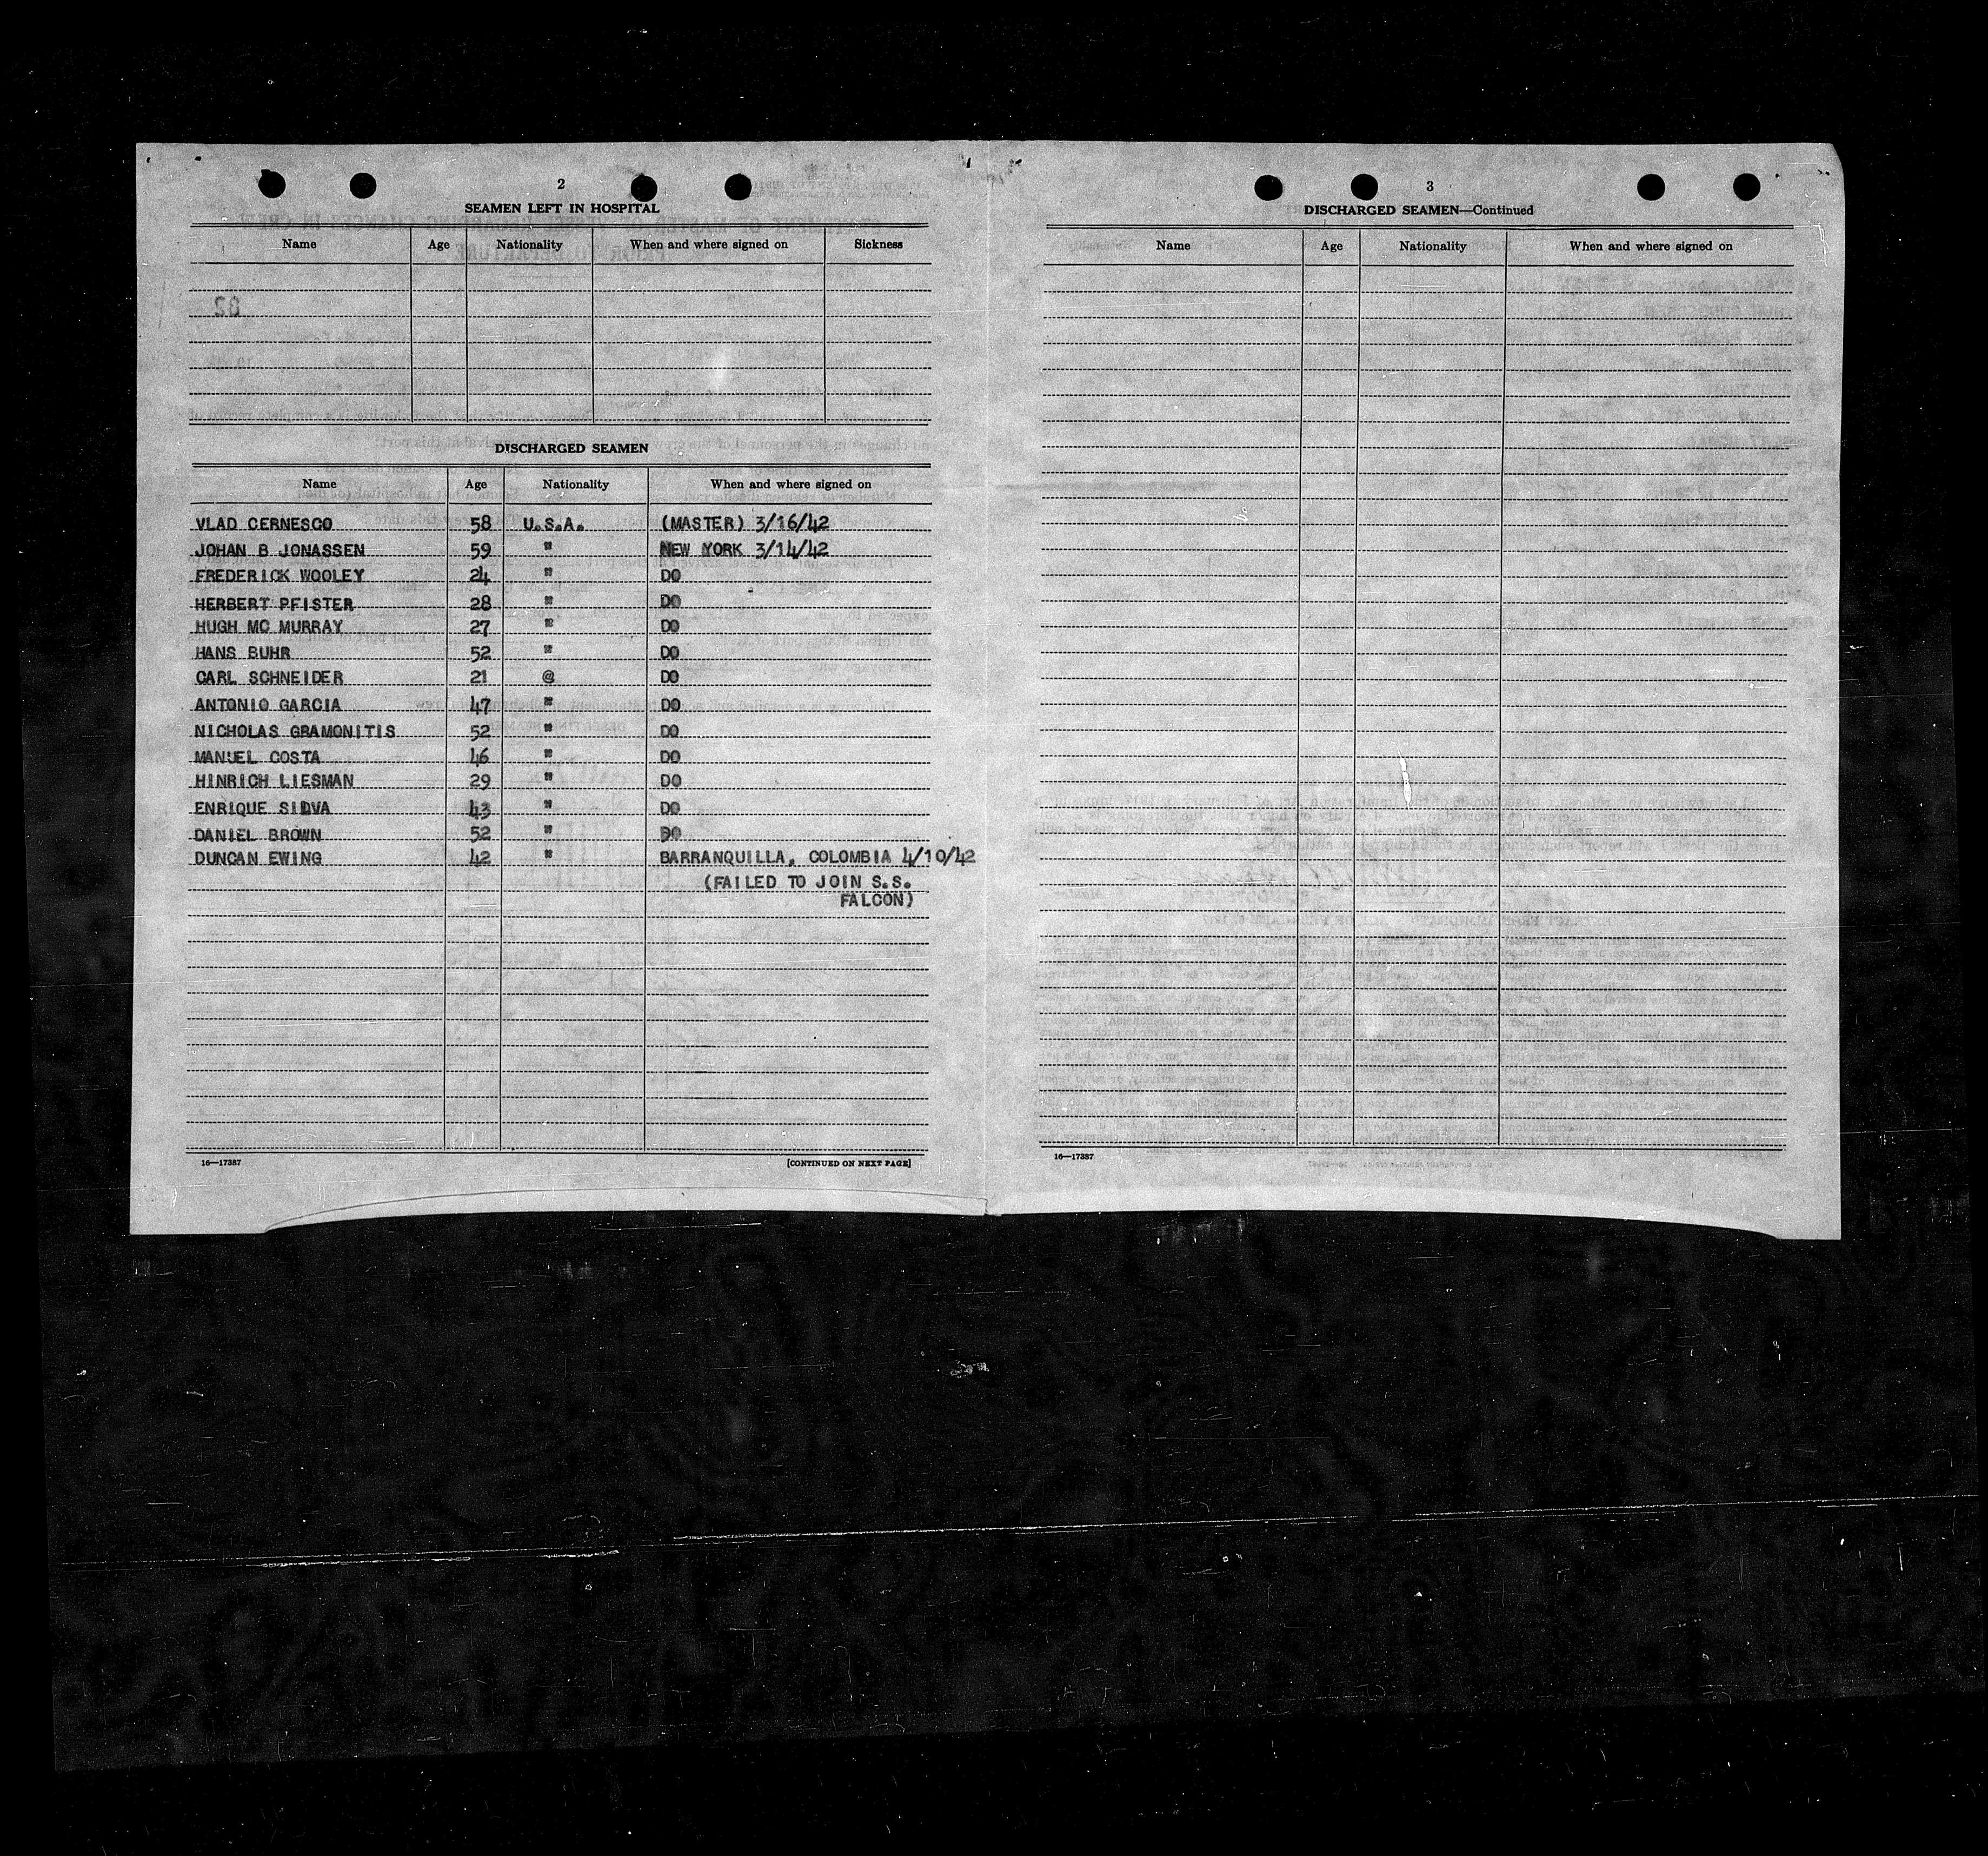 2
SEAMEN LEFT IN HOSPITAL
Name Age Nationality When and where signed on Sickness
DISCHARGED SEAMEN
Name Age Nationality When and where signed on
VLAD CERNESCO 58 U.S.A. (MASTER) 3/16/42
JOHAN B JONASSEN 59 " NEW YORK 3/14/42
FREDERICK WOOLEY 24 " DO
HERBERT PFISTER 28 " DO
HUGH MC MURRAY 27 " DO
HANS BUHR 52 " DO
CARL SCHNEIDER 21 @ DO
ANTONIO GARCIA 47 " DO
NICHOLAS GRAMONITIS 52 " DO
MANUEL COSTA 46 " DO
HINRICH LIESMAN 29 " DO
ENRIQUE SILVA 43 " DO
DANIEL BROWN 52 " DO
DUNCAN EWING 42 " BARRANQUILLA, COLOMBIA 4/10/42
(FAILED TO JOIN S.S.
FALCON)
16—17387 [CONTINUED ON NEXT PAGE]
3
DISCHARGED SEAMEN—Continued
Name Age Nationality When and where signed on
16—17387